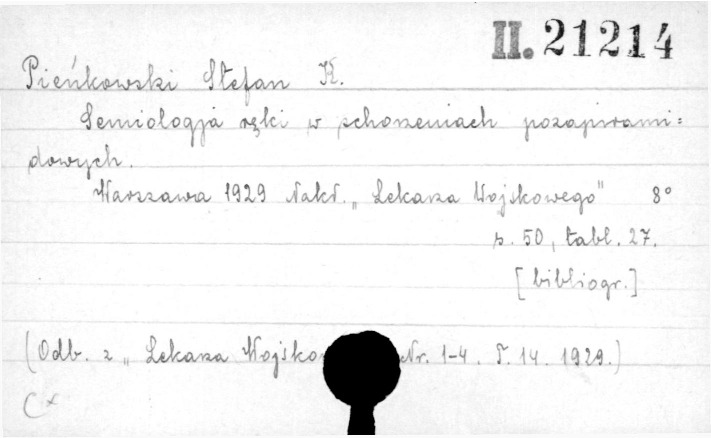 II. 21214
Pieńkowski Stefan K.
Semiologja ręki w schorzeniach pozapirami=
dowych.
Warszawa 1929 Nakł. „Lekarza Wojskowego" 8°
s. 50, tabl. 27.
[bibliogr.]
(Odb. z „Lekarza Wojsko Nr. 1-4. T. 14. 1929.)